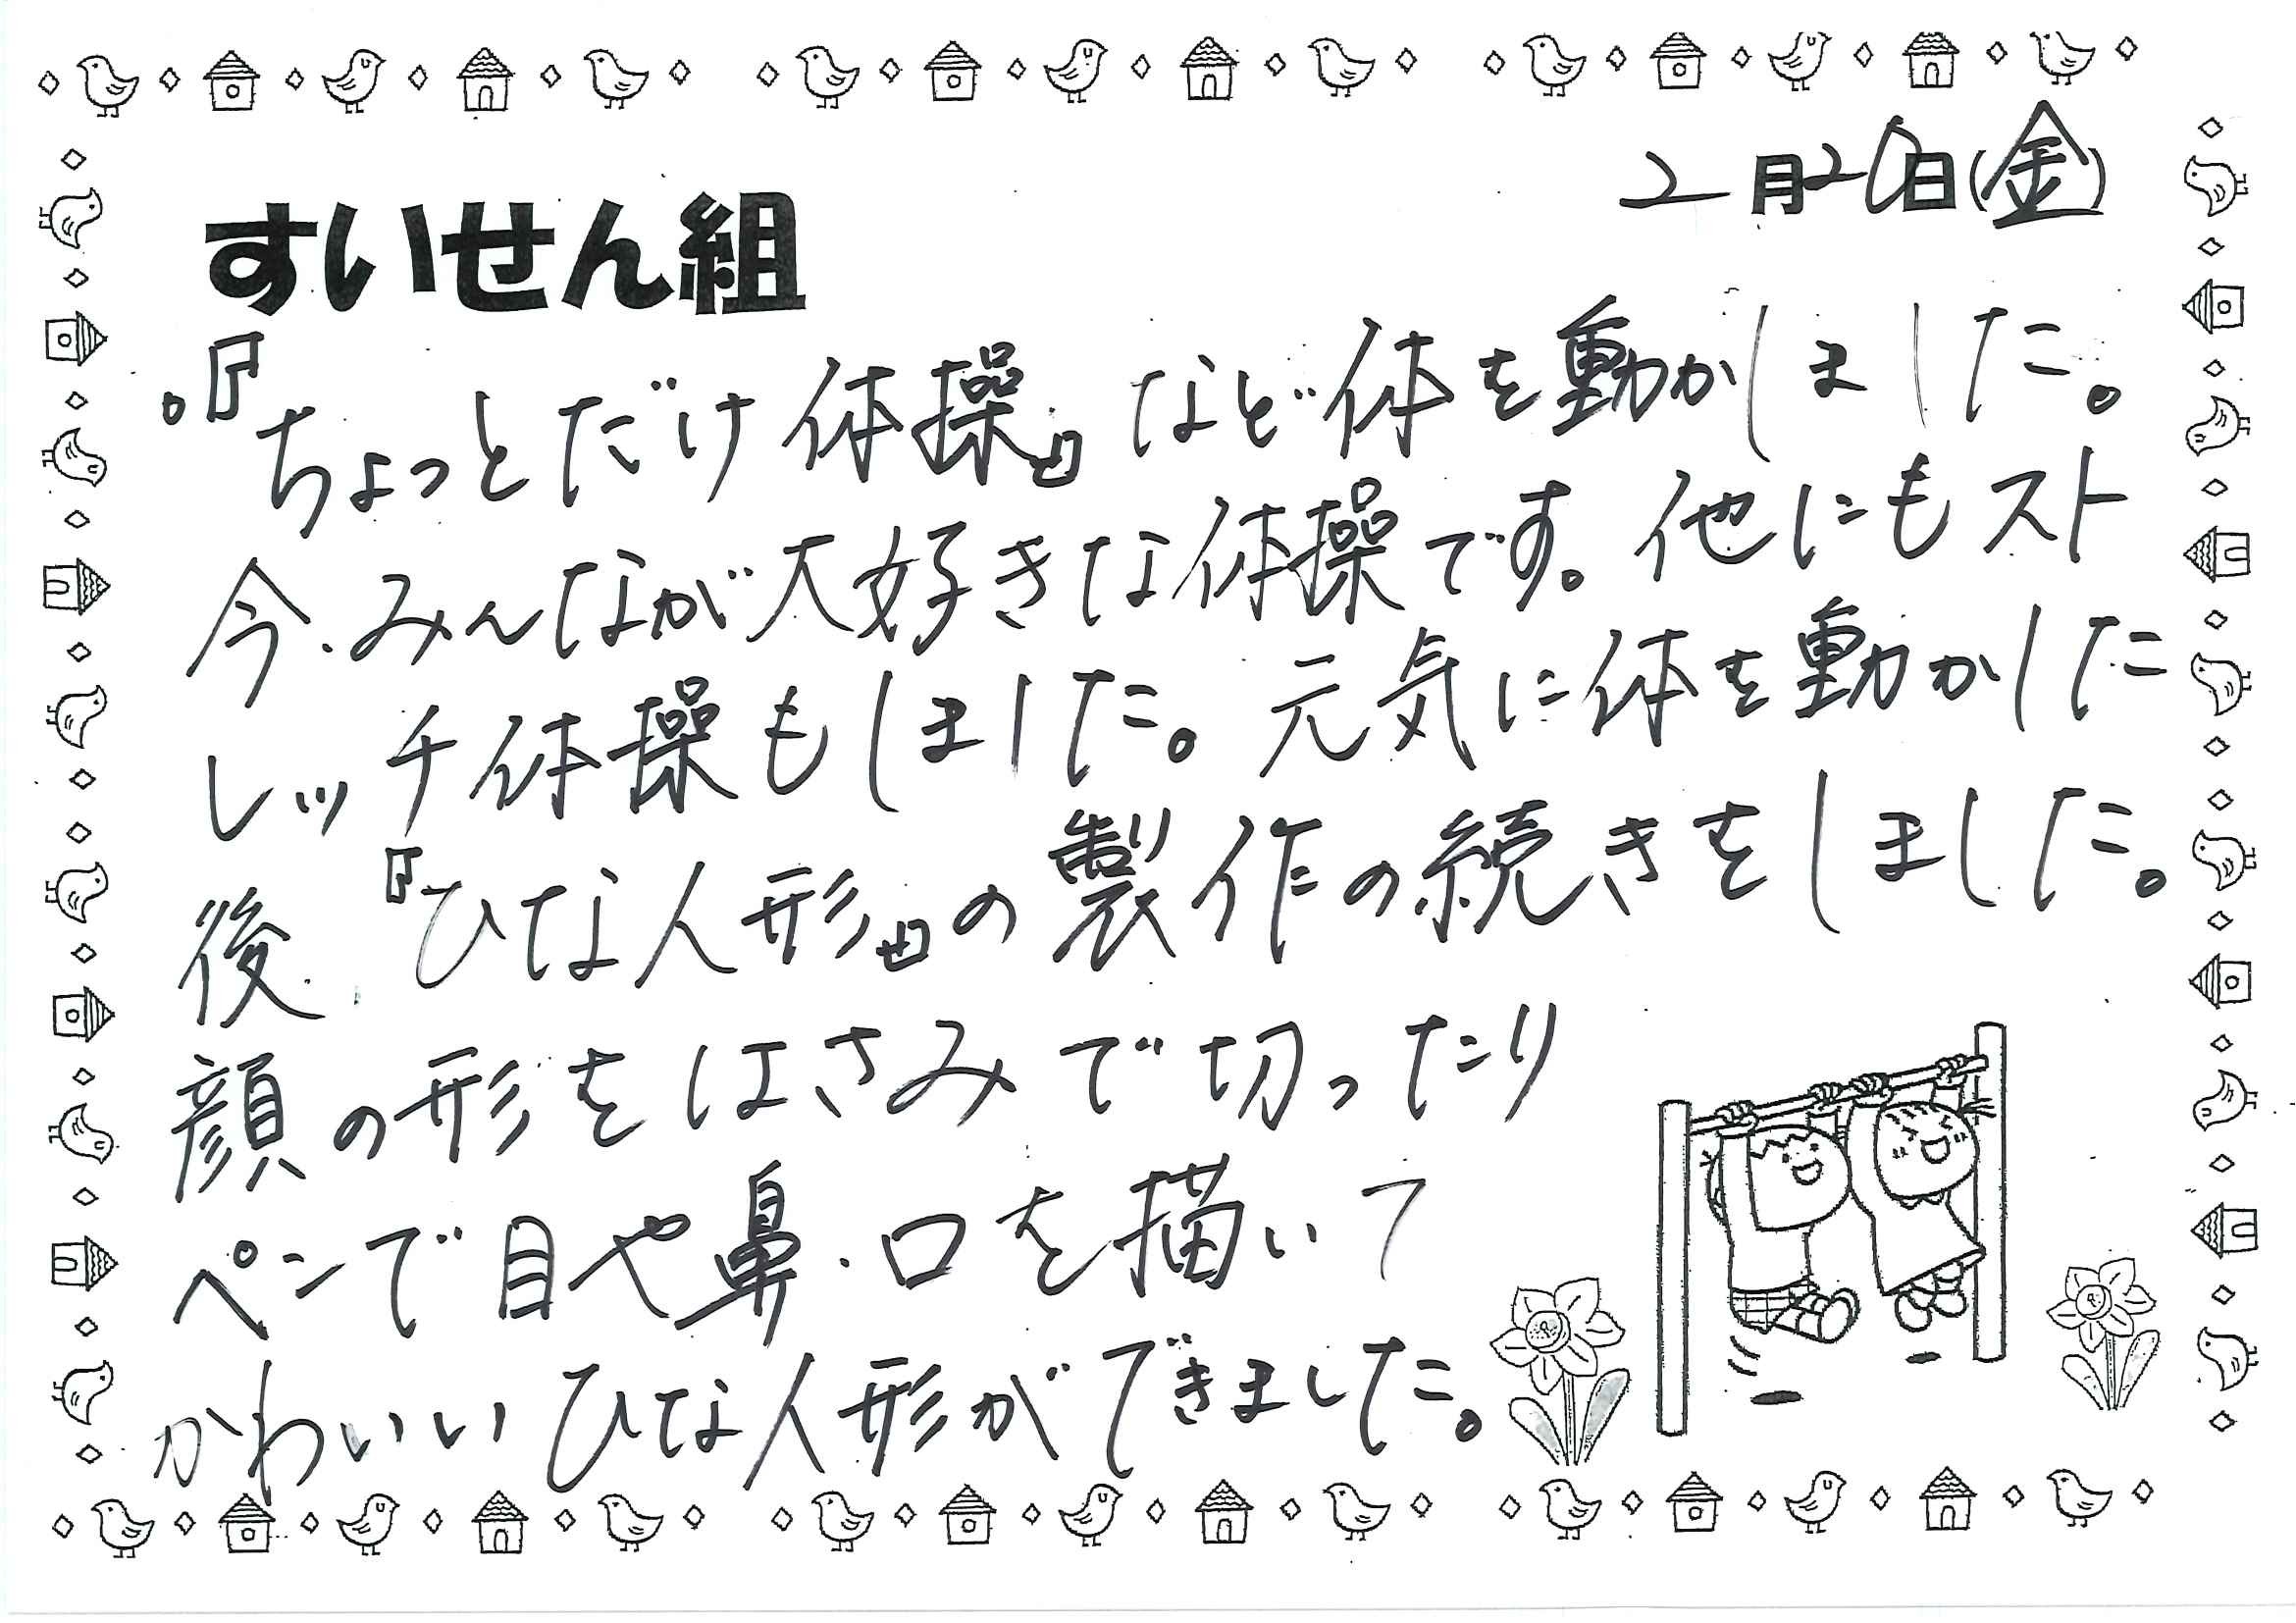 2月20日(金)
すいせん組
。『ちょっとだけ体操』など体を動かしました。
今、みんなが大好きな体操です。他にもスト
レッチ体操もしました。元気に体を動かした
後、『ひな人形』の製作の続きをしました。
顔の形をはさみで切ったり
ペンで目や鼻・口を描いて
かわいいひな人形ができました。